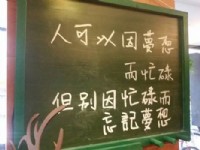 人可以因夢想
而忙碌
但别因忙碌而
忘記夢想